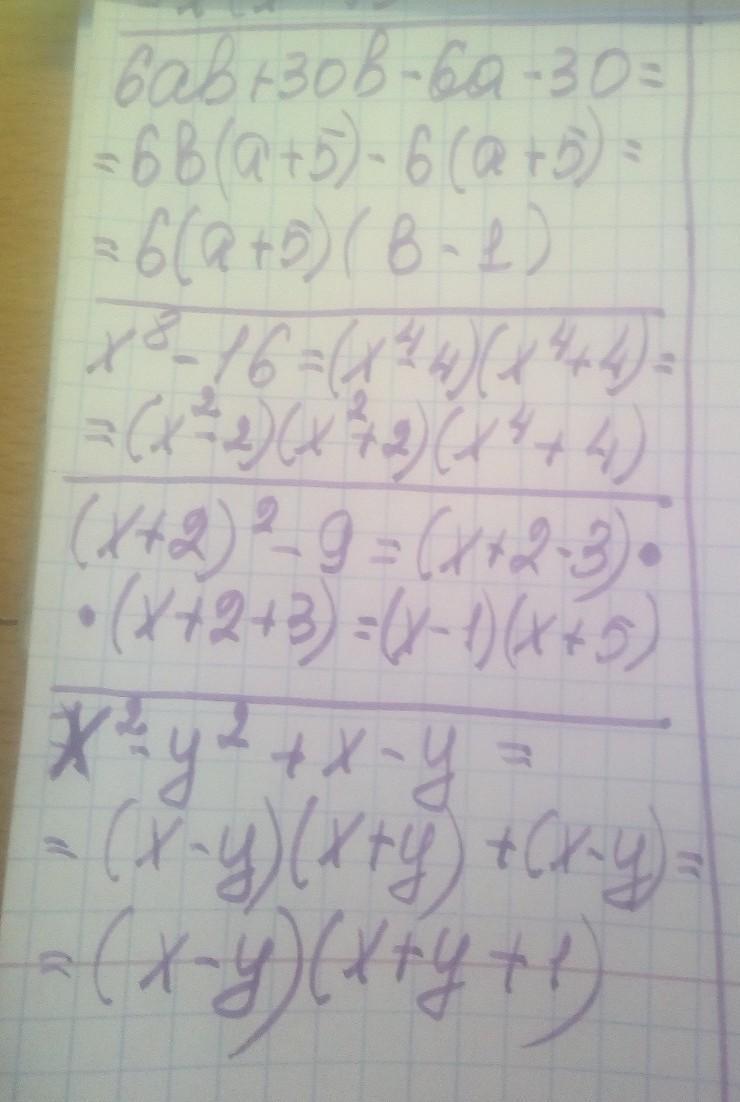 6ab+30b-6a-30=
=6b(a+5)-6(a+5)=
=6(a+5)(b-1)
x⁸-16=(x⁴-4)(x⁴+4)=
=(x²-2)(x²+2)(x⁴+4)
(x+2)²-9=(x+2-3)•
•(x+2+3)=(x-1)(x+5)
x²-y²+x-y=
=(x-y)(x+y)+(x-y)=
=(x-y)(x+y+1)